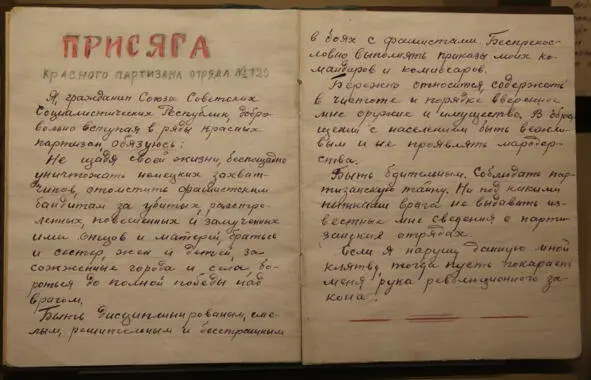 ПРИСЯГА
КРАСНОГО ПАРТИЗАНА ОТРЯДА №120
Я гражданин Союза Советских
Социалистических Республик, добро-
вольно вступая в ряды красных
партизан, обязуюсь:
Не щадя своей жизни, беспощадно
уничтожать немецких захват-
чиков, отомстить фашистским
бандитам за убитых, расстре-
лянных, повешенных и замученных
ими отцов и матерей, братьев
и сестер, жен и детей, за
сожженные города и села, бо-
роться до полной победы над
врагом.
Быть дисциплинированым, сме-
лым, решительным и бесстрашным
в боях с фашистами. Беспрекос-
ловно выполнять приказы моих ко-
мандиров и комиссаров.
Бережно относится, содержать
в чистоте и порядке вверенное
мне оружие и имущество. В обра-
щении с населением быть вежли-
вым и не проявлять мародер-
ства.
Быть бдительным. Соблюдать пар-
тизанскую тайну. Ни под какими
пытками врага не выдавать из-
вестные мне сведения о парти-
занских отрядах.
Если я нарушу данную мной
клятву, тогда пусть покарает
меня рука революционного за-
кона!